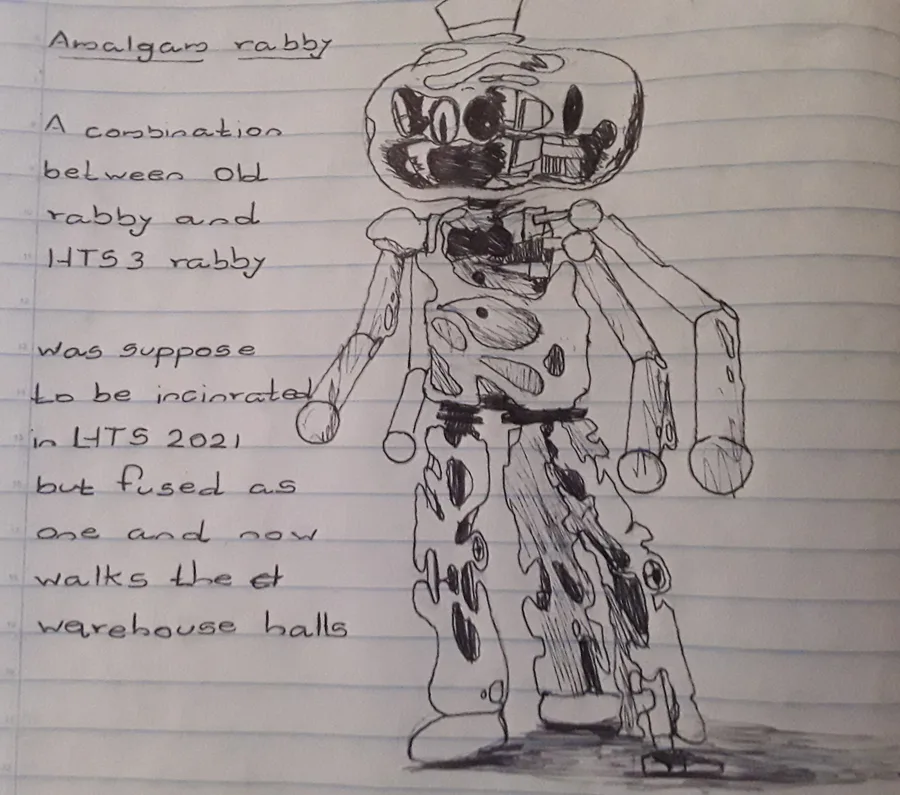 Amalgam rabby
A combination
between old
rabby and
HTS3 rabby
was suppose
to be incinrated
in HTS 2021
but fused as
one and now
walks the
warehouse halls